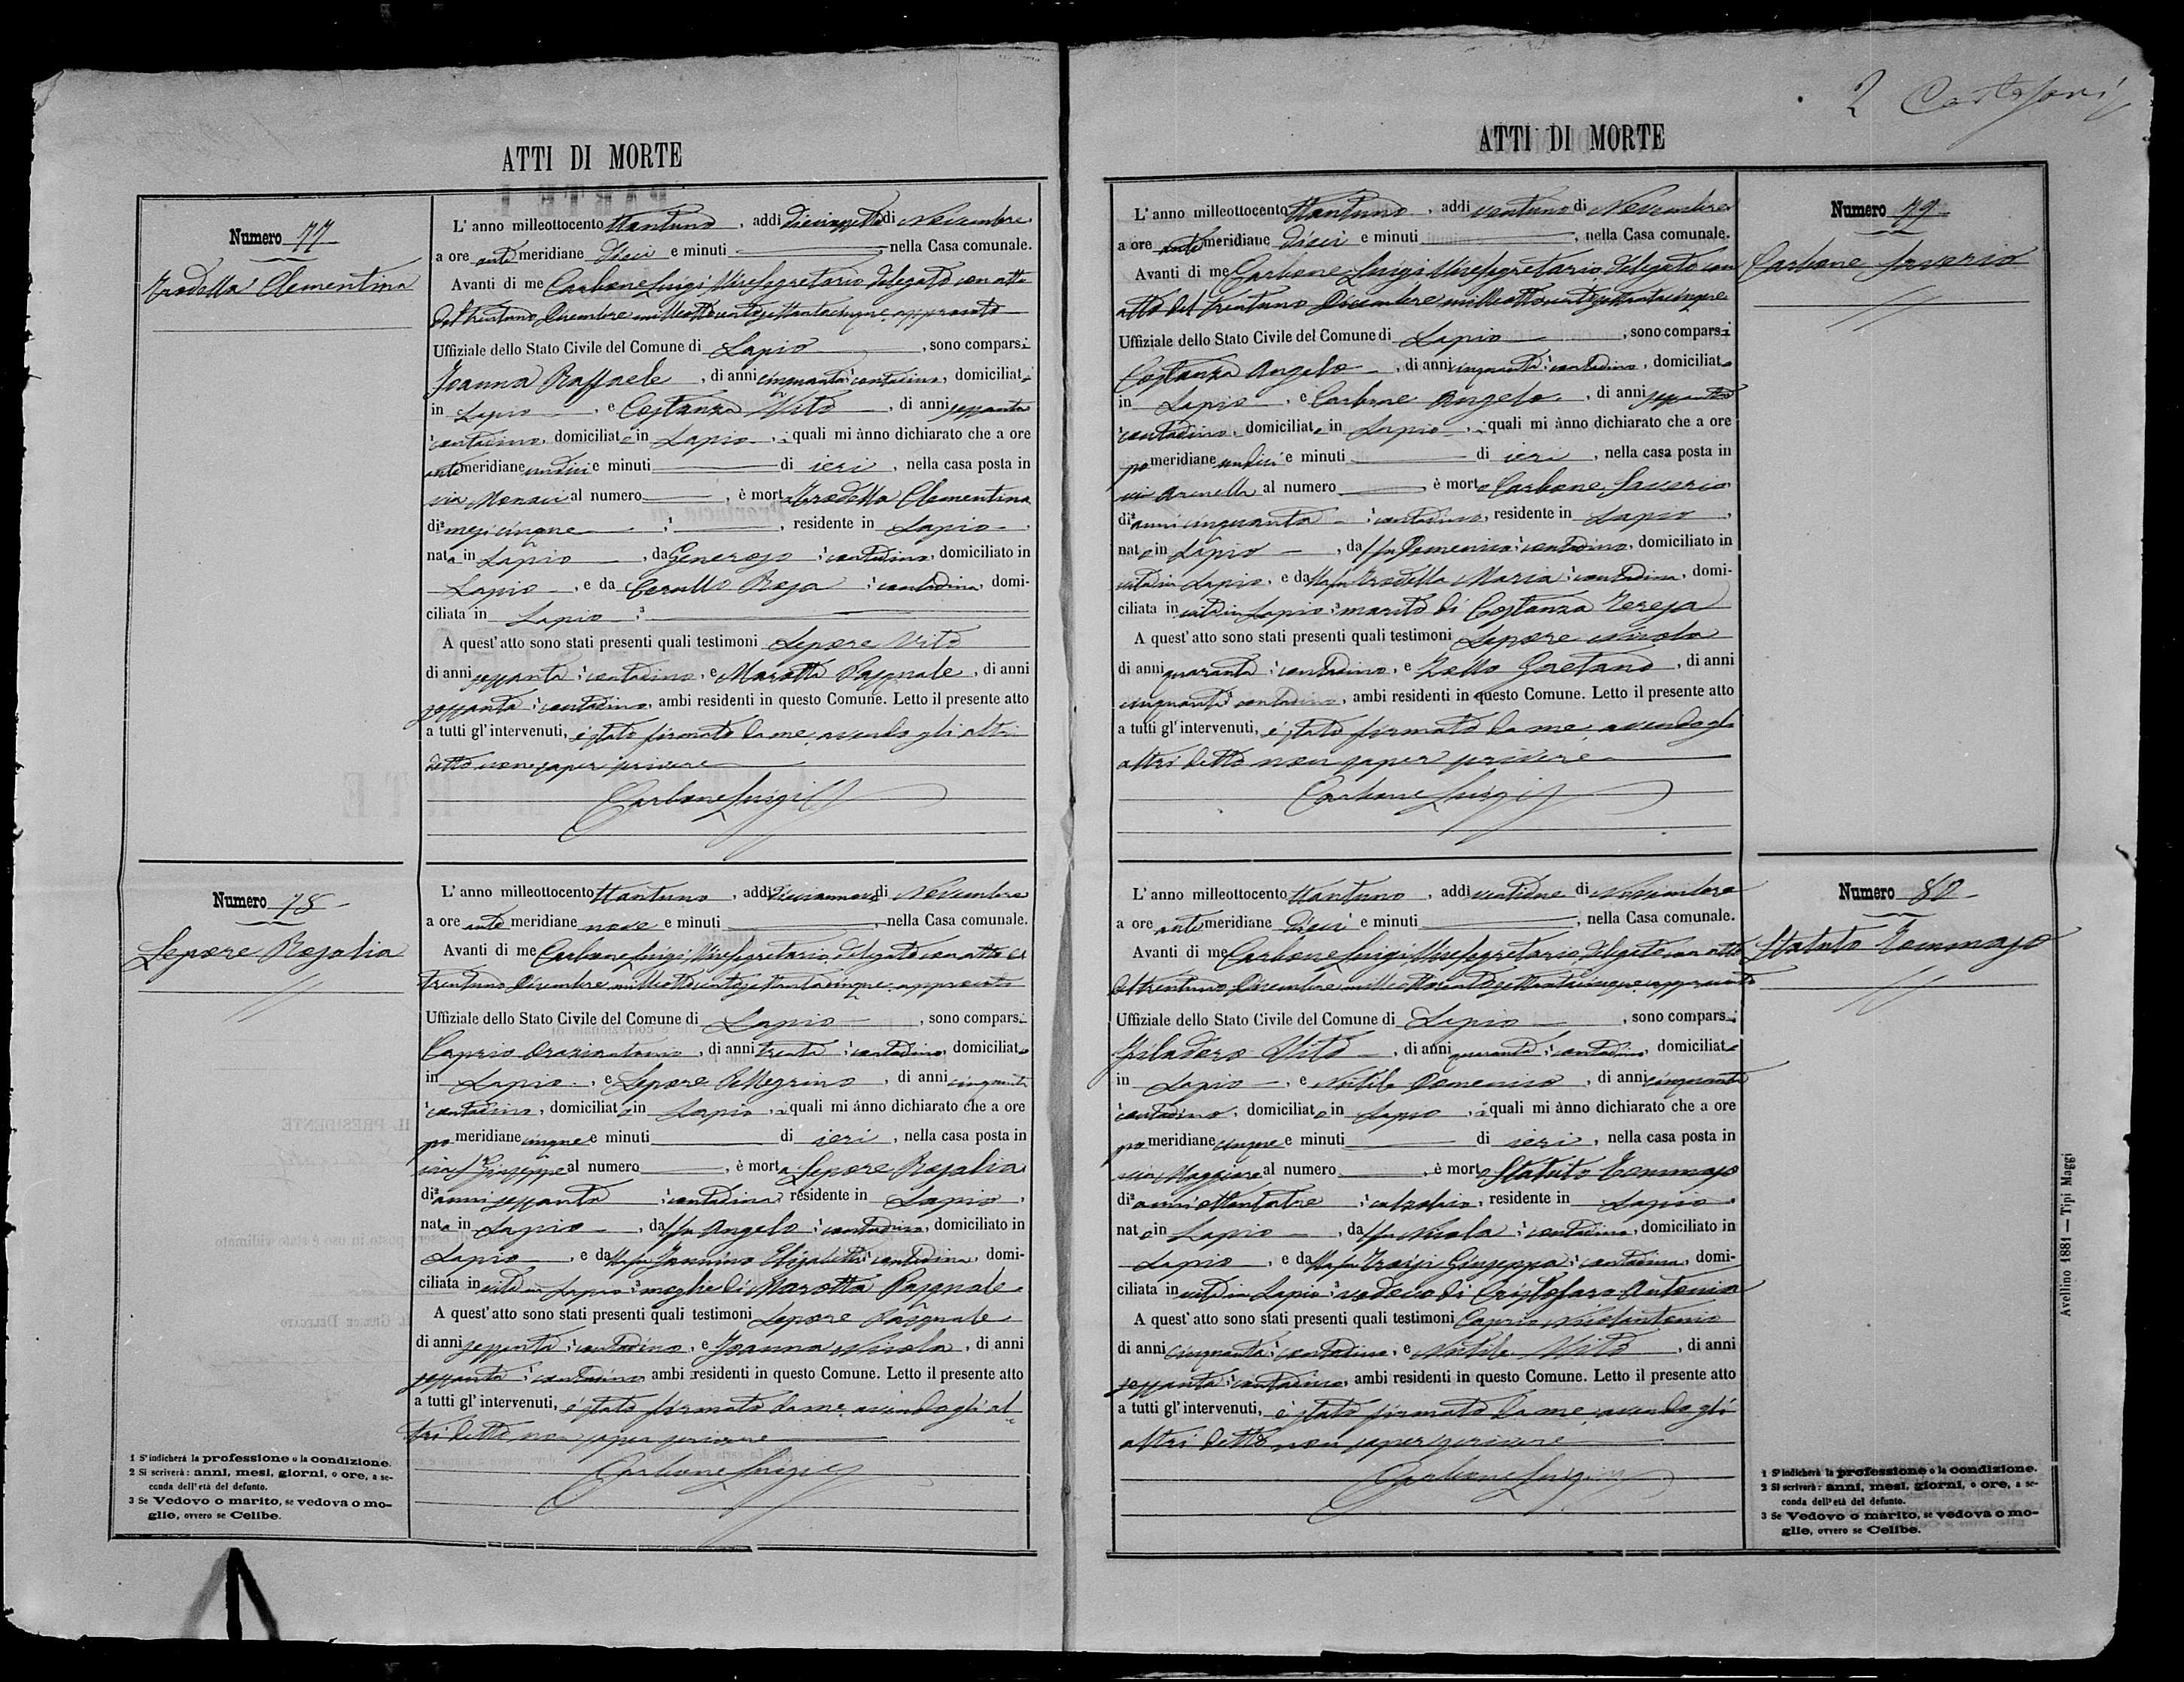 2
ATTI DI MORTE
Numero 77
Trodella Clementina
L' anno milleottocento ottantuno, addì diciassette di Novembre
a ore antimeridiane dieci e minuti, nella Casa comunale.
Avanti di me Carbone Luigi Vicesegretario delegato con atto
del trentuno Dicembre milleottocentosettantacinque approvato
Uffiziale dello Stato Civile del Comune di Lapio, sono comparsi
Joanna Raffaele, di anni cinquanta contadino, domiciliato
in Lapio, e Costanza Vito, di anni sessanta
contadino, domiciliato in Lapio, i quali mi ànno dichiarato che a ore
antimeridiane undici e minuti di ieri, nella casa posta in
via Monaci al numero, è morta Trodella Clementina
di ² mesi cinque, residente in Lapio,
nata in Lapio, da Generoso contadino, domiciliato in
Lapio, e da Cerullo Rosa contadina, domi-
ciliata in Lapio ³
A quest' atto sono stati presenti quali testimoni Lepore Vito
di anni sessanta contadino, e Marotta Pasquale, di anni
sessanta contadino, ambi residenti in questo Comune. Letto il presente atto
a tutti gl' intervenuti, è stato firmato da me avendo gli altri
detto non saper scrivere
Carbone Luigi
Numero 78
Lepore Rosalia
L' anno milleottocento ottantuno, addì diciannove di Novembre
a ore antimeridiane nove e minuti, nella Casa comunale.
Avanti di me Carbone Luigi Vicesegretario delegato con atto del
trentuno Dicembre milleottocentosettantacinque approvato
Uffiziale dello Stato Civile del Comune di Lapio, sono comparsi
Caprio Orazinantonio, di anni trenta contadino, domiciliato
in Lapio, e Lepore Pellegrino, di anni cinquanta
contadino, domiciliato in Lapio, i quali mi ànno dichiarato che a ore
pomeridiane cinque e minuti di ieri, nella casa posta in
via S. Giuseppe al numero, è morta Lepore Rosalia
di ² anni sessanta contadina, residente in Lapio,
nata in Lapio, da fu Angelo contadino, domiciliato in
Lapio, e da la fu Jannino Elisabetta contadina, domi-
ciliata in vita in Lapio ³ moglie di Marotta Pasquale
A quest' atto sono stati presenti quali testimoni Lepore Pasquale
di anni sessanta contadino, e Joanna Nicola, di anni
sessanta contadino, ambi residenti in questo Comune. Letto il presente atto
a tutti gl' intervenuti, è stato firmato da me avendo gli al
tri detto non saper scrivere
Carbone Luigi
1 S' indicherà la professione o la condizione.
2 Si scriverà: anni, mesi, giorni, o ore, a se-
conda dell' età del defunto.
3 Se Vedovo o marito, se vedova o mo-
glie, ovvero se Celibe.
ATTI DI MORTE
Numero 79
Carbone Saverio
L' anno milleottocento ottantuno, addì ventuno di Novembre
a ore antimeridiane dieci e minuti, nella Casa comunale.
Avanti di me Carbone Luigi Vicesegretario delegato con
atto del trentuno Dicembre milleottocentosettantacinque
Uffiziale dello Stato Civile del Comune di Lapio, sono comparsi
Costanza Angelo, di anni cinquanta contadino, domiciliato
in Lapio, e Carbone Angelo, di anni sessanta
contadino, domiciliato in Lapio, i quali mi ànno dichiarato che a ore
pomeridiane undici e minuti di ieri, nella casa posta in
via Arenella al numero, è morto Carbone Saverio
di ² anni cinquanta contadino, residente in Lapio,
nato in Lapio, da fu Domenico contadino, domiciliato in
vita in Lapio, e da la fu Trodella Maria contadina, domi-
ciliata in vita in Lapio ³ marito di Costanza Teresa
A quest' atto sono stati presenti quali testimoni Lepore Nicola
di anni quaranta contadino, e Zollo Gaetano, di anni
cinquanta contadino, ambi residenti in questo Comune. Letto il presente atto
a tutti gl' intervenuti, è stato firmato da me avendo gli
altri detto non saper scrivere
Carbone Luigi
Numero 80
Statuto Tommaso
L' anno milleottocento ottantuno, addì ventidue di Novembre
a ore antimeridiane dieci e minuti, nella Casa comunale.
Avanti di me Carbone Luigi Vicesegretario delegato con atto
del trentuno Dicembre milleottocentosettantacinque approvato
Uffiziale dello Stato Civile del Comune di Lapio, sono comparsi
Filadoro Vito, di anni quaranta contadino, domiciliato
in Lapio, e Nutile Domenico, di anni cinquanta
contadino, domiciliato in Lapio, i quali mi ànno dichiarato che a ore
pomeridiane cinque e minuti di ieri, nella casa posta in
via Maggiore al numero, è morto Statuto Tommaso
di ² anni ottantatre calzolaio, residente in Lapio,
nato in Lapio, da fu Nicola contadino, domiciliato in
Lapio, e da la fu Troisi Giuseppa contadina, domi-
ciliata in vita in Lapio ³ vedovo di Cristofaro Antonia
A quest' atto sono stati presenti quali testimoni Caprio Nicolantonio
di anni cinquanta contadino, e Nutile Vito, di anni
sessanta contadino, ambi residenti in questo Comune. Letto il presente atto
a tutti gl' intervenuti, è stato firmato da me avendo gli
altri detto non saper scrivere
Carbone Luigi
1 S' indicherà la professione o la condizione.
2 Si scriverà: anni, mesi, giorni, o ore, a se-
conda dell' età del defunto.
3 Se Vedovo o marito, se vedova o mo-
glie, ovvero se Celibe.
Avellino 1881 — Tipi Maggi